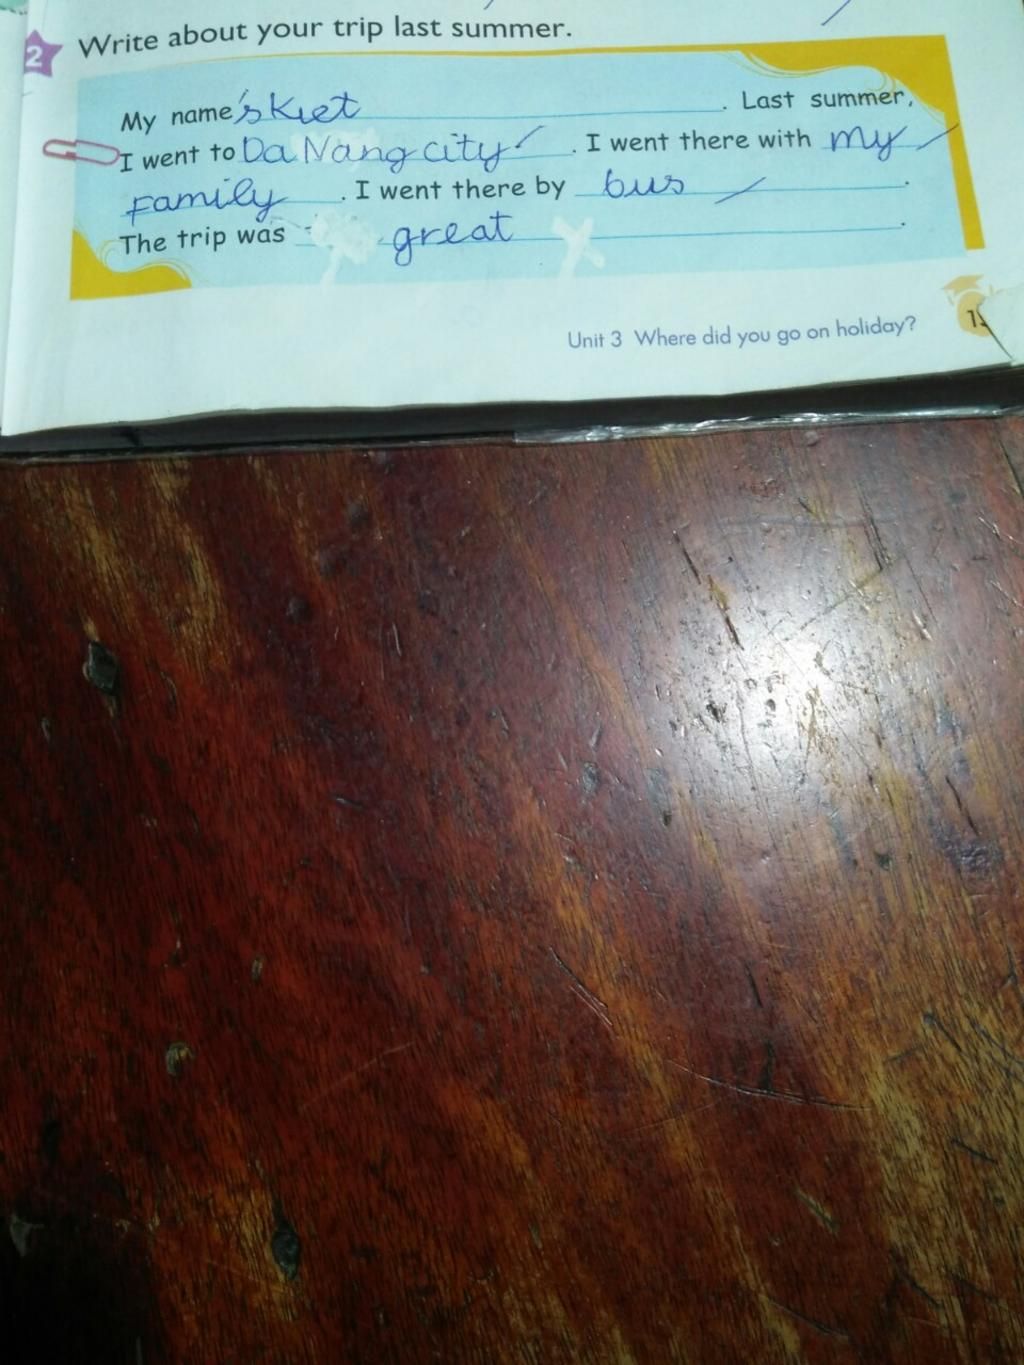 2 Write about your trip last summer.
My name's Kiet . Last summer,
I went to Da Nang city . I went there with my
family . I went there by bus .
The trip was great .
Unit 3 Where did you go on holiday?